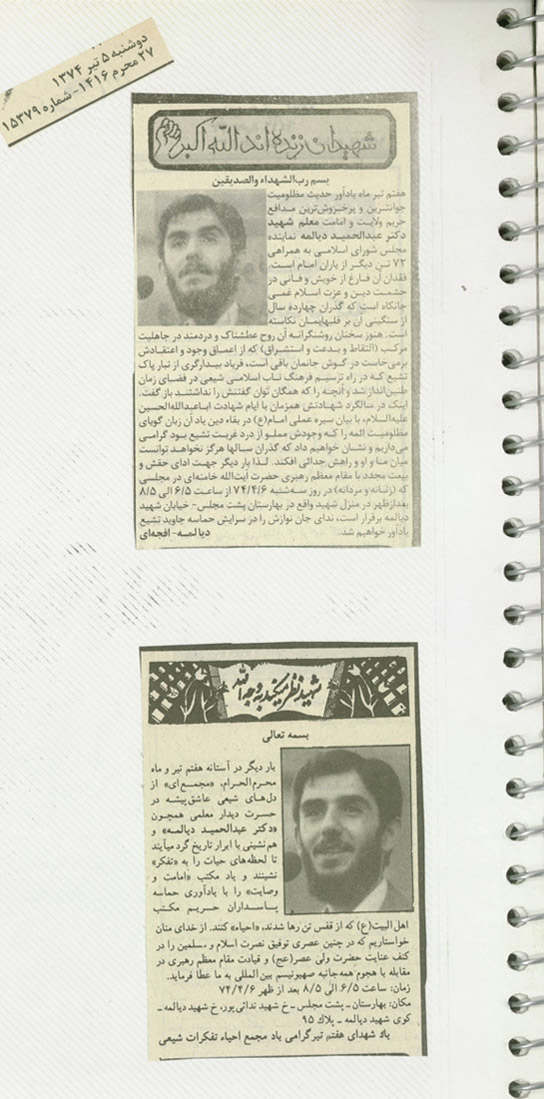 دوشنبه ۵ تیر ۱۳۷۴
۲۷ محرم ۱۴۱۶- شماره ۱۵۳۷۹
شهیدان زنده اند الله اکبر
بسم رب‌الشهداء والصدیقین
هفتم تیر ماه یادآور حدیث مظلومیت
جوانترین و پرخروش‌ترین مدافع
حریم ولایت و امامت معلم شهید
دکتر عبدالحمید دیالمه نماینده
مجلس شورای اسلامی به همراهی
۷۲ تن دیگر از یاران امام است.
فقدان آن فارغ از خویش و فانی در
حشمت دین و عزت اسلام غمی
جانکاه است که گذران چهارده سال
از سنگینی آن بر قلبهایمان نکاسته
است. هنوز سخنان روشنگرانه آن روح عطشناک و دردمند در جاهلیت
مرکب (التقاط و بدعت و استشراق) که از اعماق وجود و اعتقادش
برمی‌خاست در گوش جانمان باقی است، فریاد بیدارگری از تبار پاک
تشیع که در راه ترسیم فرهنگ ناب اسلامی شیعی در فضای زمان
طنین‌انداز شد و آنچه را که همگان توان گفتنش را نداشتند باز گفت.
اینک در سالگرد شهادتش همزمان با ایام شهادت اباعبدالله‌الحسین
علیه‌السلام، با بیان سیره عملی امام(ع) در بقاء دین یاد آن زبان گویای
مظلومیت ائمه را که وجودش مملو از درد غربت تشیع بود گرامی
می‌داریم و نشان خواهیم داد که گذران سالها هرگز نخواهد توانست
میان ما و او و راهش جدائی افکند. لذا بار دیگر جهت ادای حقش و
بیعت مجدد با مقام معظم رهبری حضرت آیت‌الله خامنه‌ای در مجلسی
که (زنانه و مردانه) در روز سه‌شنبه ۷۴/۴/۶ از ساعت ۶/۵ الی ۸/۵
بعدازظهر در منزل شهید واقع در بهارستان پشت مجلس- خیابان شهید
دیالمه برقرار است، ندای جان نوازش را در سرایش حماسه جاوید تشیع
یادآور خواهیم شد. دیالمه- افجه‌ای
شهید نظر میکند به وجه الله
بسمه تعالی
بار دیگر در آستانه هفتم تیر و ماه
محرم‌الحرام، «مجمع‌ای» از
دل‌های شیعی عاشق‌پیشه در
حسرت دیدار معلمی همچون
«دکتر عبدالحمید دیالمه» و
هم‌نشینی با ابرار تاریخ گرد می‌آیند
تا لحظه‌های حیات را به «تفکر»
نشینند و یاد مکتب «امامت و
وصایت» را با یادآوری حماسه
پاسداران حریم مکتب
اهل البیت(ع) که از قفس تن رها شدند، «احیاء» کنند. از خدای منان
خواستاریم که در چنین عصری توفیق نصرت اسلام و مسلمین را در
کنف عنایت حضرت ولی عصر(عج) و قیادت مقام معظم رهبری در
مقابله با هجوم همه‌جانبه صهیونیسم بین‌المللی به ما عطا فرماید.
زمان: ساعت ۶/۵ الی ۸/۵ بعد از ظهر ۷۴/۴/۶
مکان: بهارستان - پشت مجلس - خ شهید ندائی‌پور، خ شهید دیالمه -
کوی شهید دیالمه - پلاک ۹۵
یاد شهدای هفتم تیر گرامی باد مجمع احیاء تفکرات شیعی